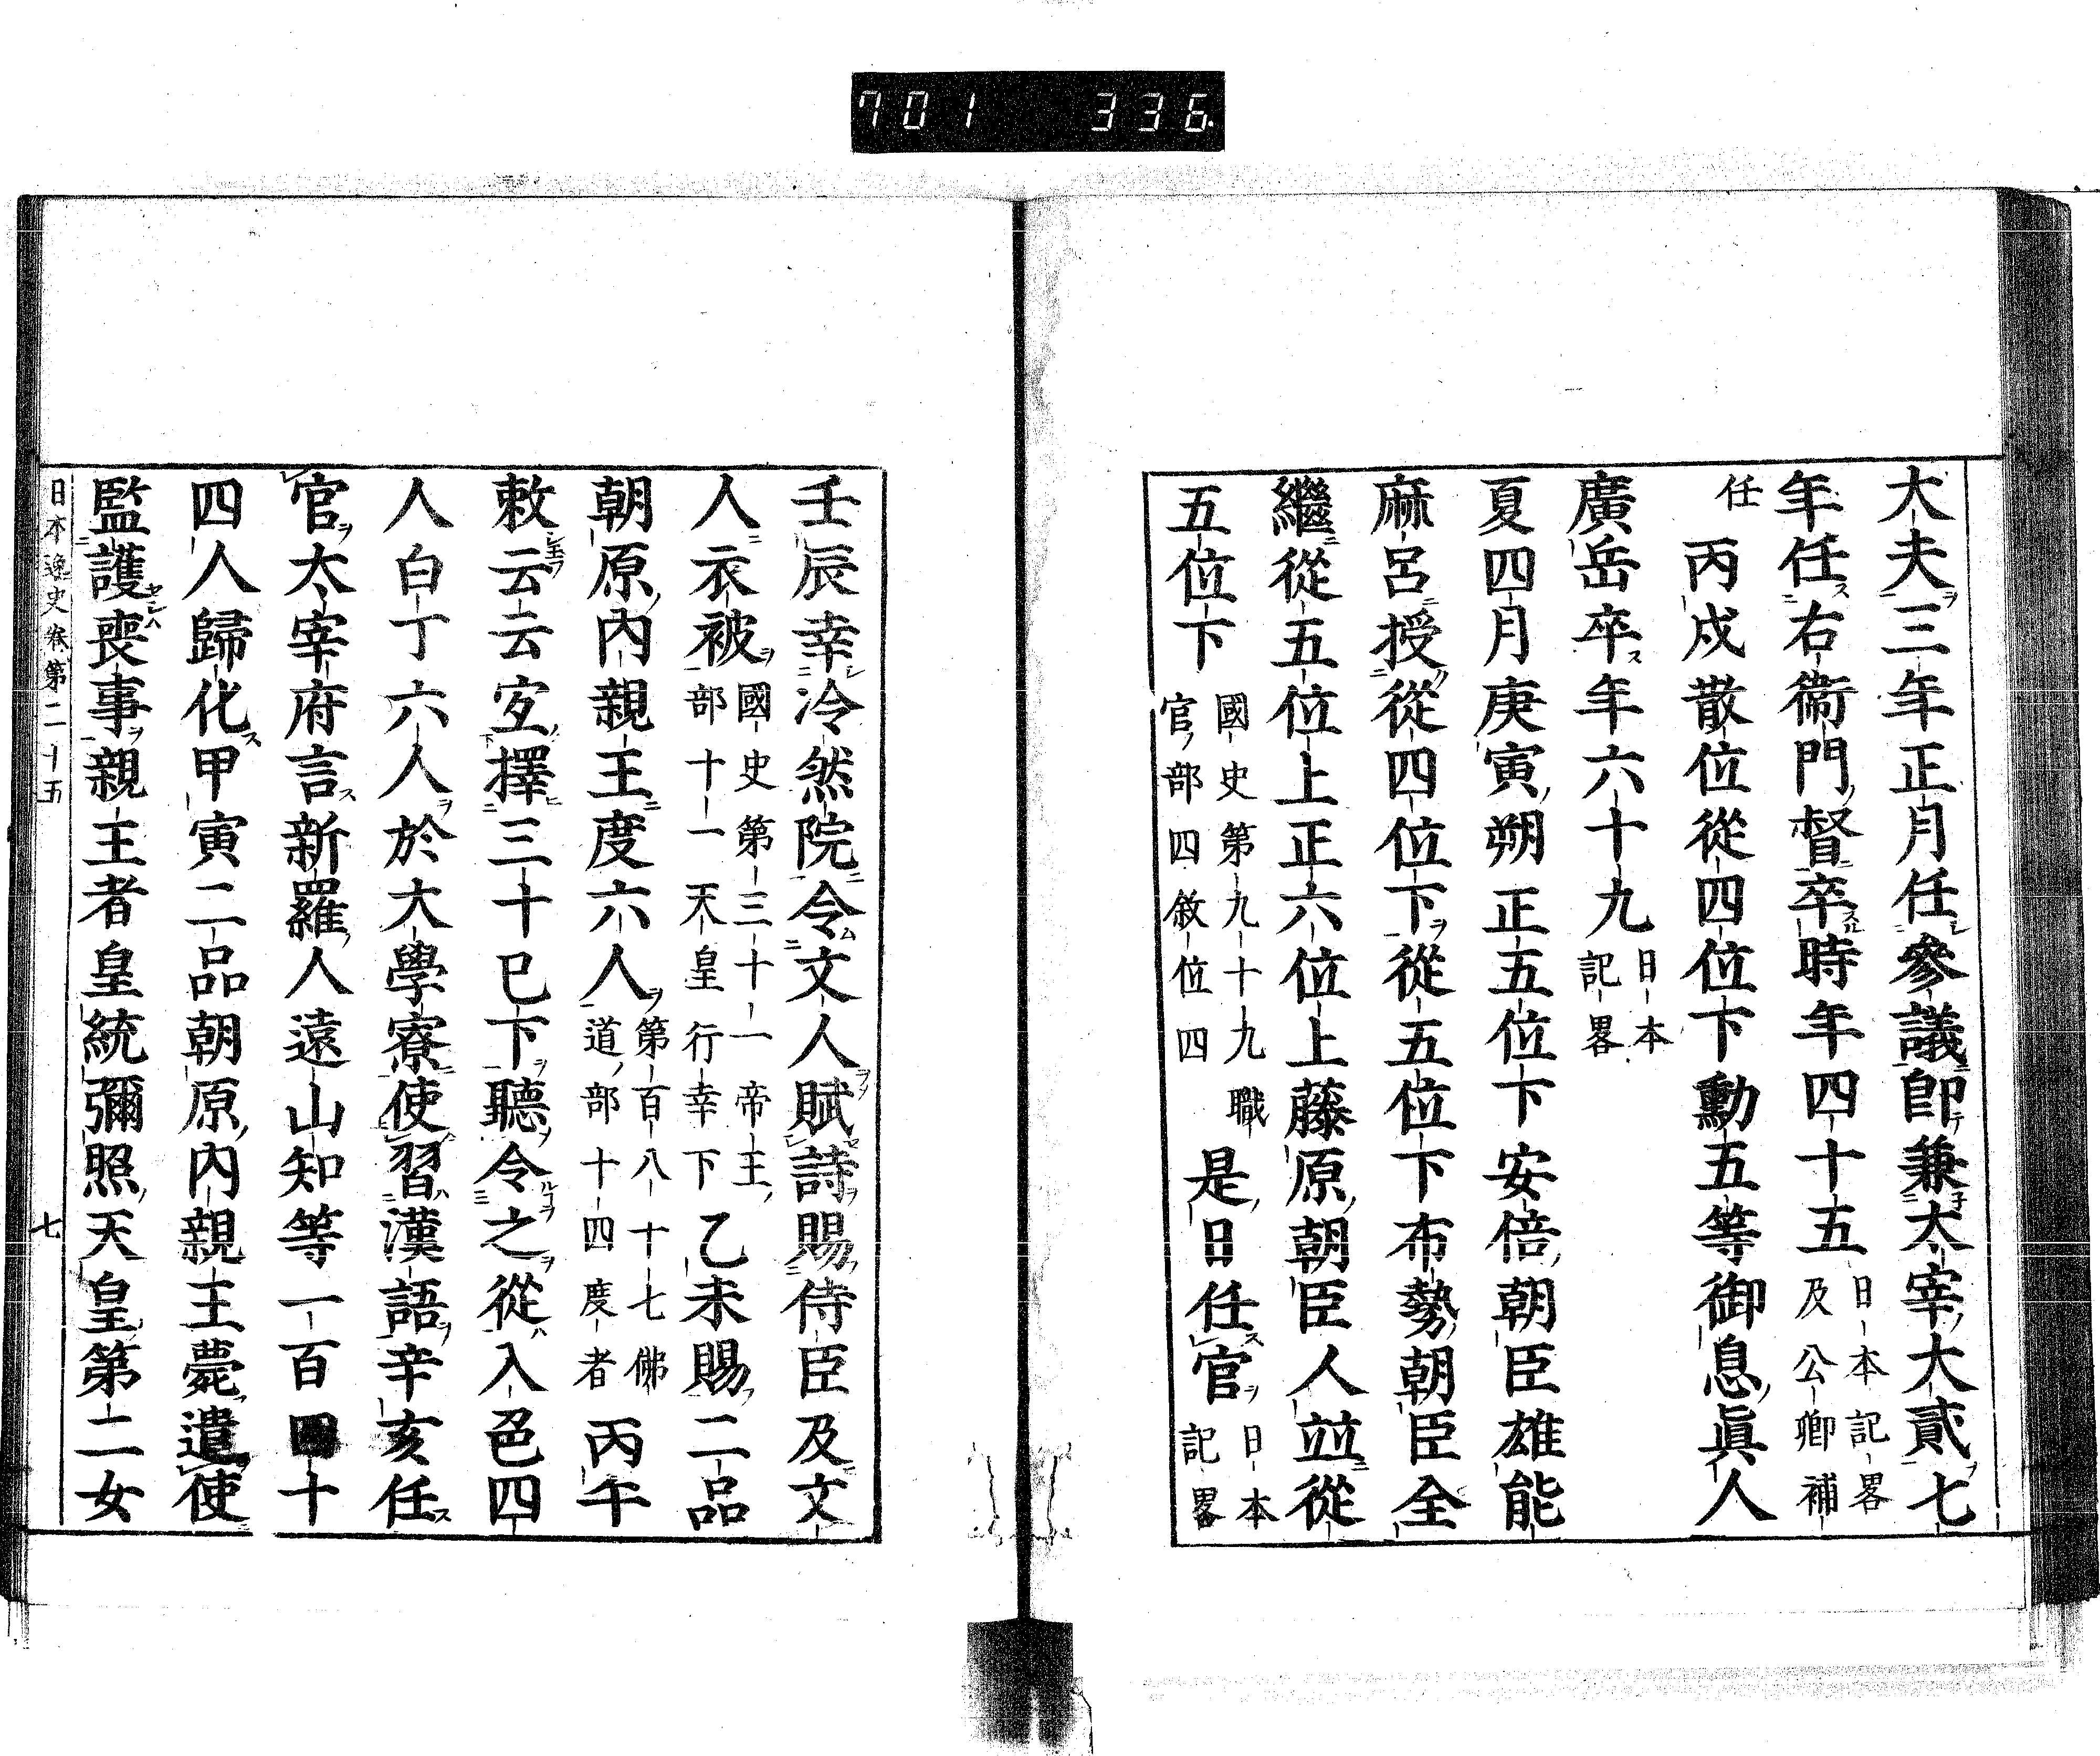 701 336
大夫三年正月任參議即兼太宰大貳七
年任右衞門督卒時年四十五日本記畧及公卿補
任丙戌散位從四位下勳五等御息眞人
廣岳卒年六十九日本記畧
夏四月庚寅朔正五位下安倍朝臣雄能
麻呂授從四位下從五位下布勢朝臣全
繼從五位上正六位上藤原朝臣人竝從
五位下國史第九十九職官部四敘位四是日任官日本記畧
壬辰幸冷然院令文人賦詩賜侍臣及文
人衣被國史第三十一帝王部十一天皇行幸下乙未賜二品
朝原內親王度六人第百八十七佛道部十四度者丙午
敕云云宜擇三十已下聽令之從入色四
人白丁六人於大學寮使習漢語辛亥任
官太宰府言新羅人遠山知等一百四十
四人歸化甲寅二品朝原內親王薨遣使
監護喪事親王者皇統彌照天皇第二女
日本逸史卷第二十五 七